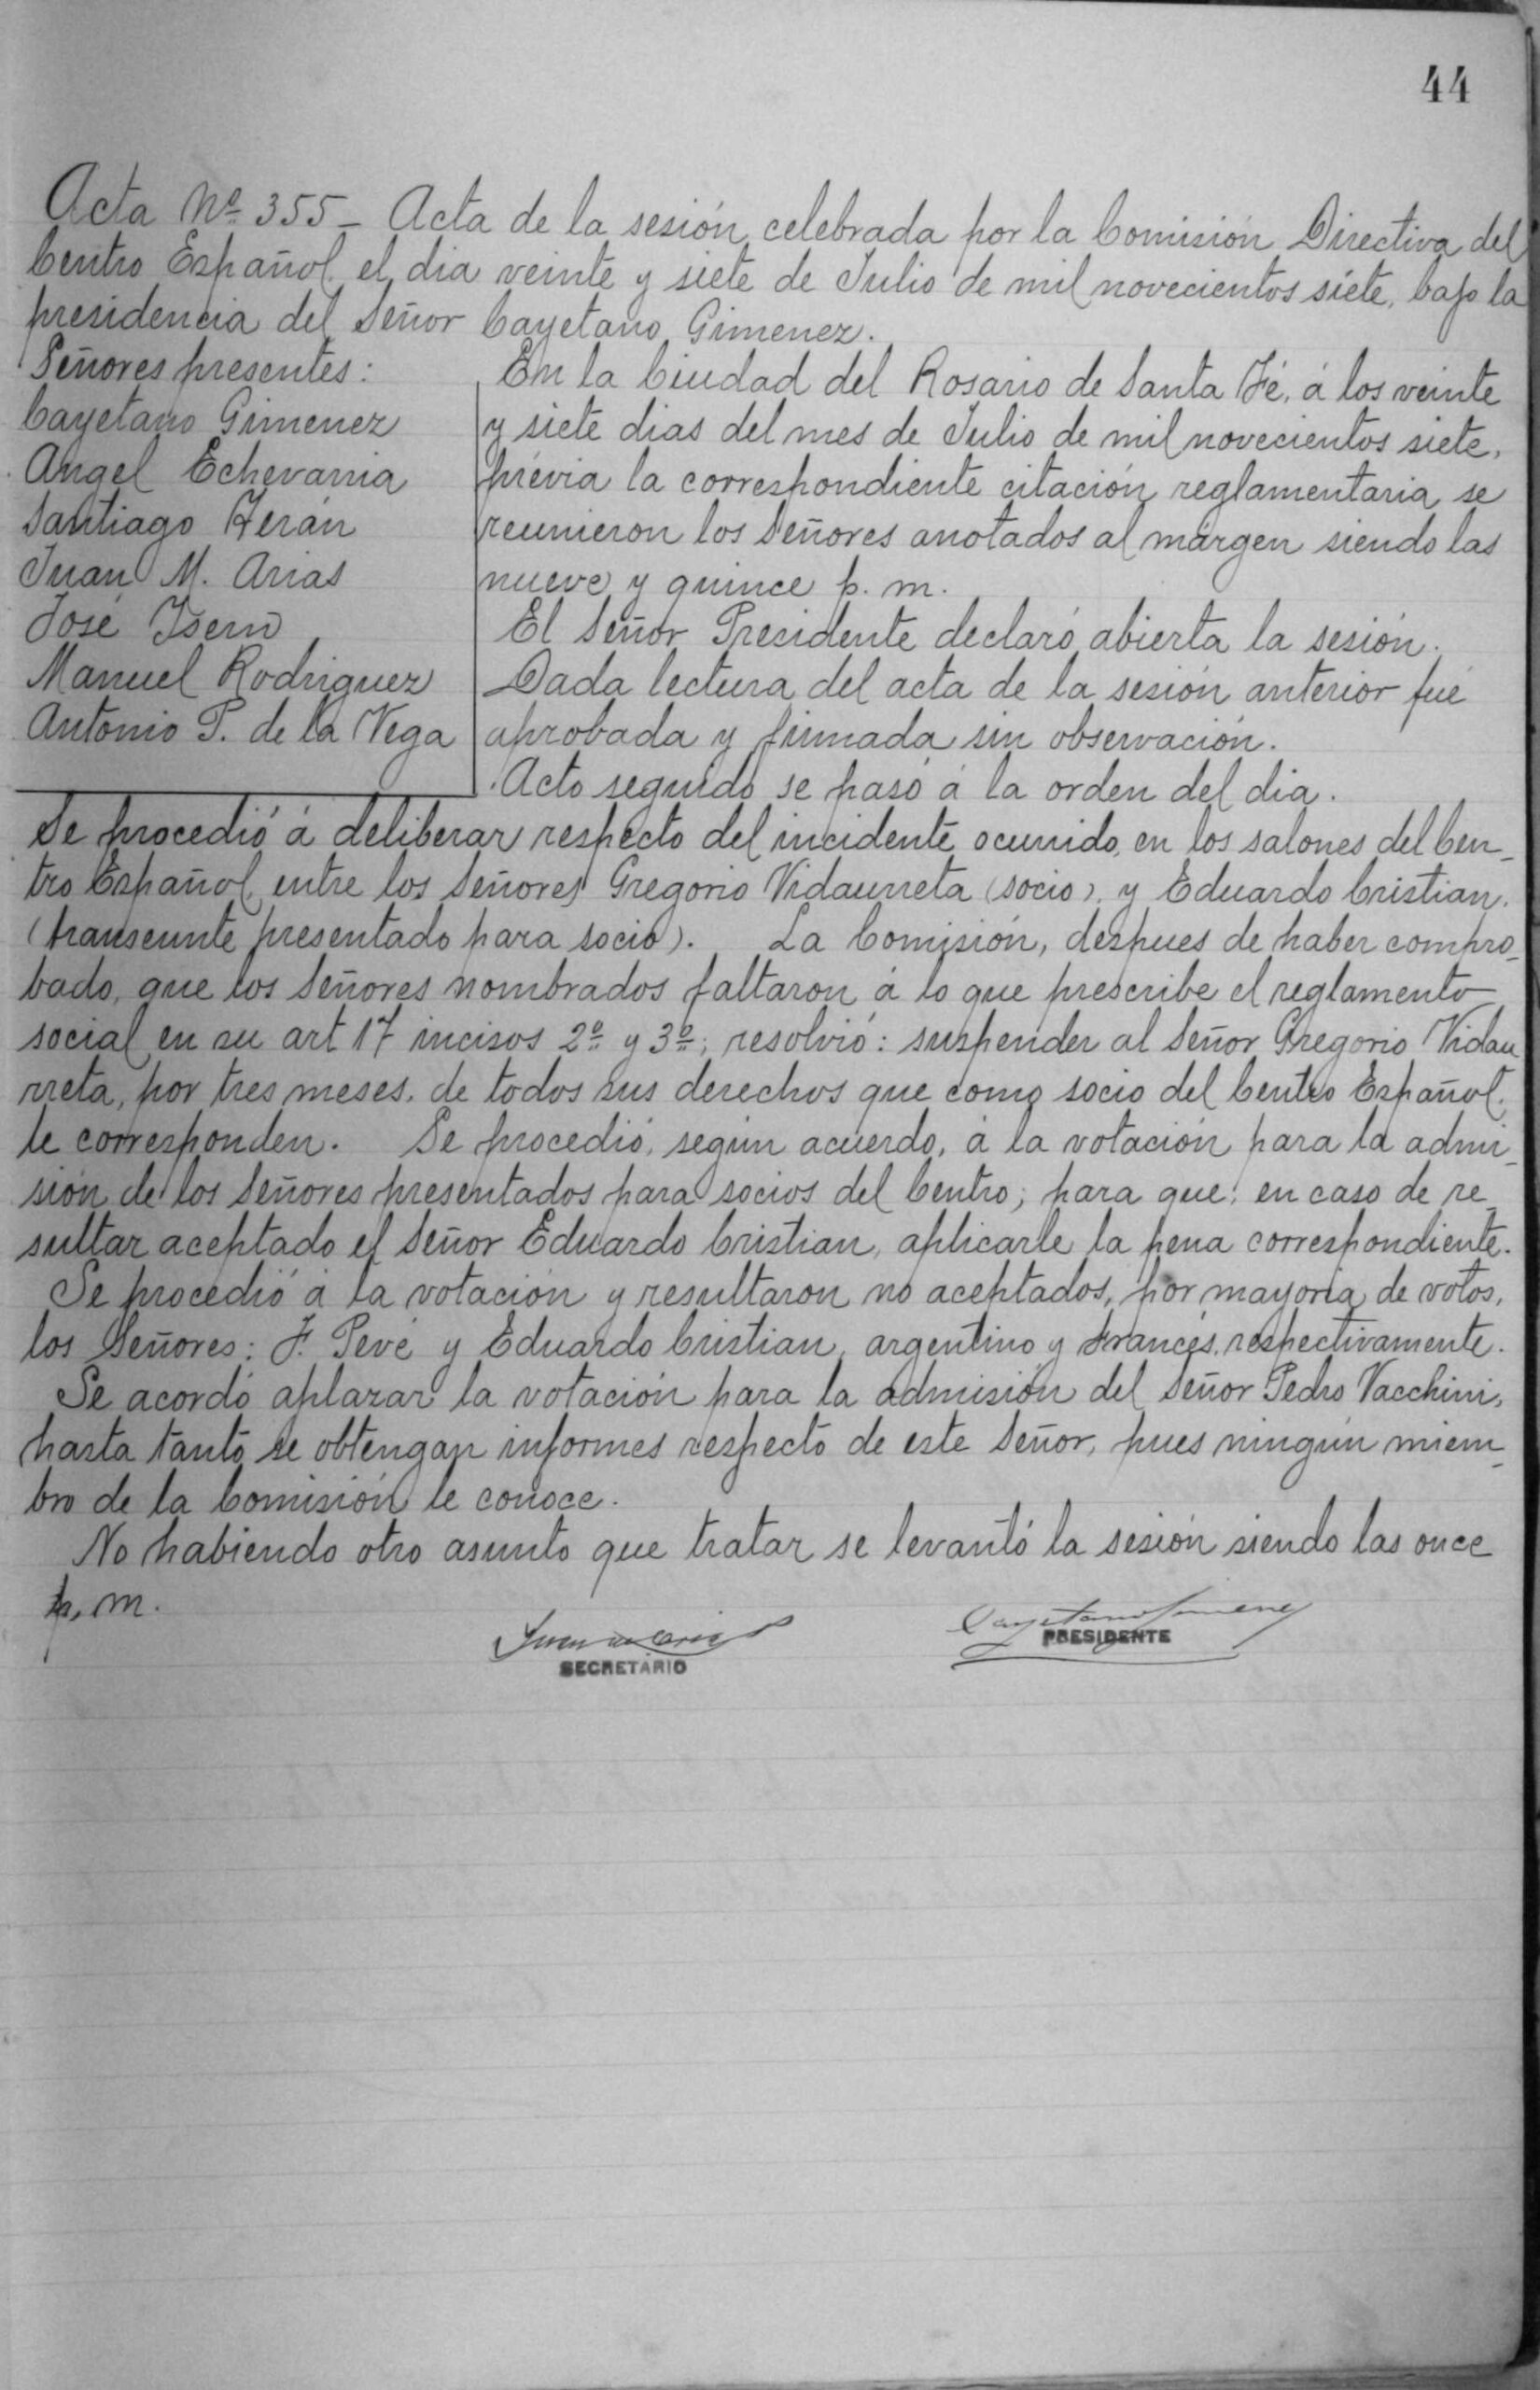 44
Acta Nº 355 - Acta de la sesión celebrada por la Comisión Directiva del
Centro Español el dia veinte y siete de Julio de mil novecientos siete, bajo la
presidencia del Señor Cayetano Gimenez.
Señores presentes:
Cayetano Gimenez
Angel Echevarria
Santiago Terán
Juan M. Arias
José Isern
Manuel Rodriguez
Antonio P. de la Vega
En la Ciudad del Rosario de Santa Fé, á los veinte
y siete dias del mes de Julio de mil novecientos siete,
prévia la correspondiente citación reglamentaria se
reunieron los Señores anotados al márgen siendo las
nueve y quince p. m.
El Señor Presidente declaró abierta la sesión.
Dada lectura del acta de la sesión anterior fué
aprobada y firmada sin observación.
Acto seguido se pasó á la orden del dia.
Se procedió á deliberar respecto del incidente ocurrido, en los salones del Cen_
tro Español, entre los Señores Gregorio Vidaurreta (socio), y Eduardo Cristian.
(transeunte presentado para socio). La Comisión, despues de haber compro_
bado, que los Señores nombrados faltaron á lo que prescribe el reglamento
social en su art 17 incisos 2º y 3º; resolvió: suspender al Señor Gregorio Vidau
rreta, por tres meses, de todos sus derechos que como socio del Centro Español,
le corresponden. Se procedió, según acuerdo, á la votación para la admi_
sión de los Señores presentados para socios del Centro; para que: en caso de re_
sultar aceptado el Señor Eduardo Cristian, aplicarle la pena correspondiente.
Se procedió á la votación y resultaron no aceptados, por mayoria de votos,
los Señores: F. Pevé y Eduardo Cristian, argentino y francés, respectivamente.
Se acordó aplazar la votación para la admisión del Señor Pedro Vacchini,
hasta tanto se obtengan informes respecto de este Señor, pues ningún miem_
bro de la Comisión le conoce.
No habiendo otro asunto que tratar se levantó la sesión siendo las once
p. m.
Juan M Arias
SECRETARIO
Cayetano Gimenez
PRESIDENTE